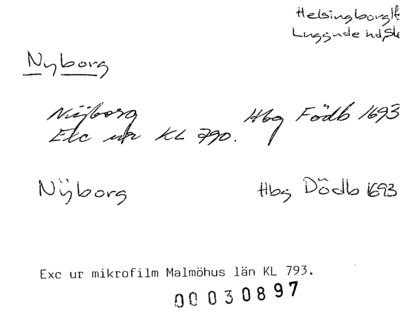 Helsingborg
Luggude hd, Sk
Nyborg
Nÿborg Hbg Födb 1693
Exc ur KL 790.
Nÿborg Hbg Dödb 1693
Exc ur mikrofilm Malmöhus län KL 793.
00030897